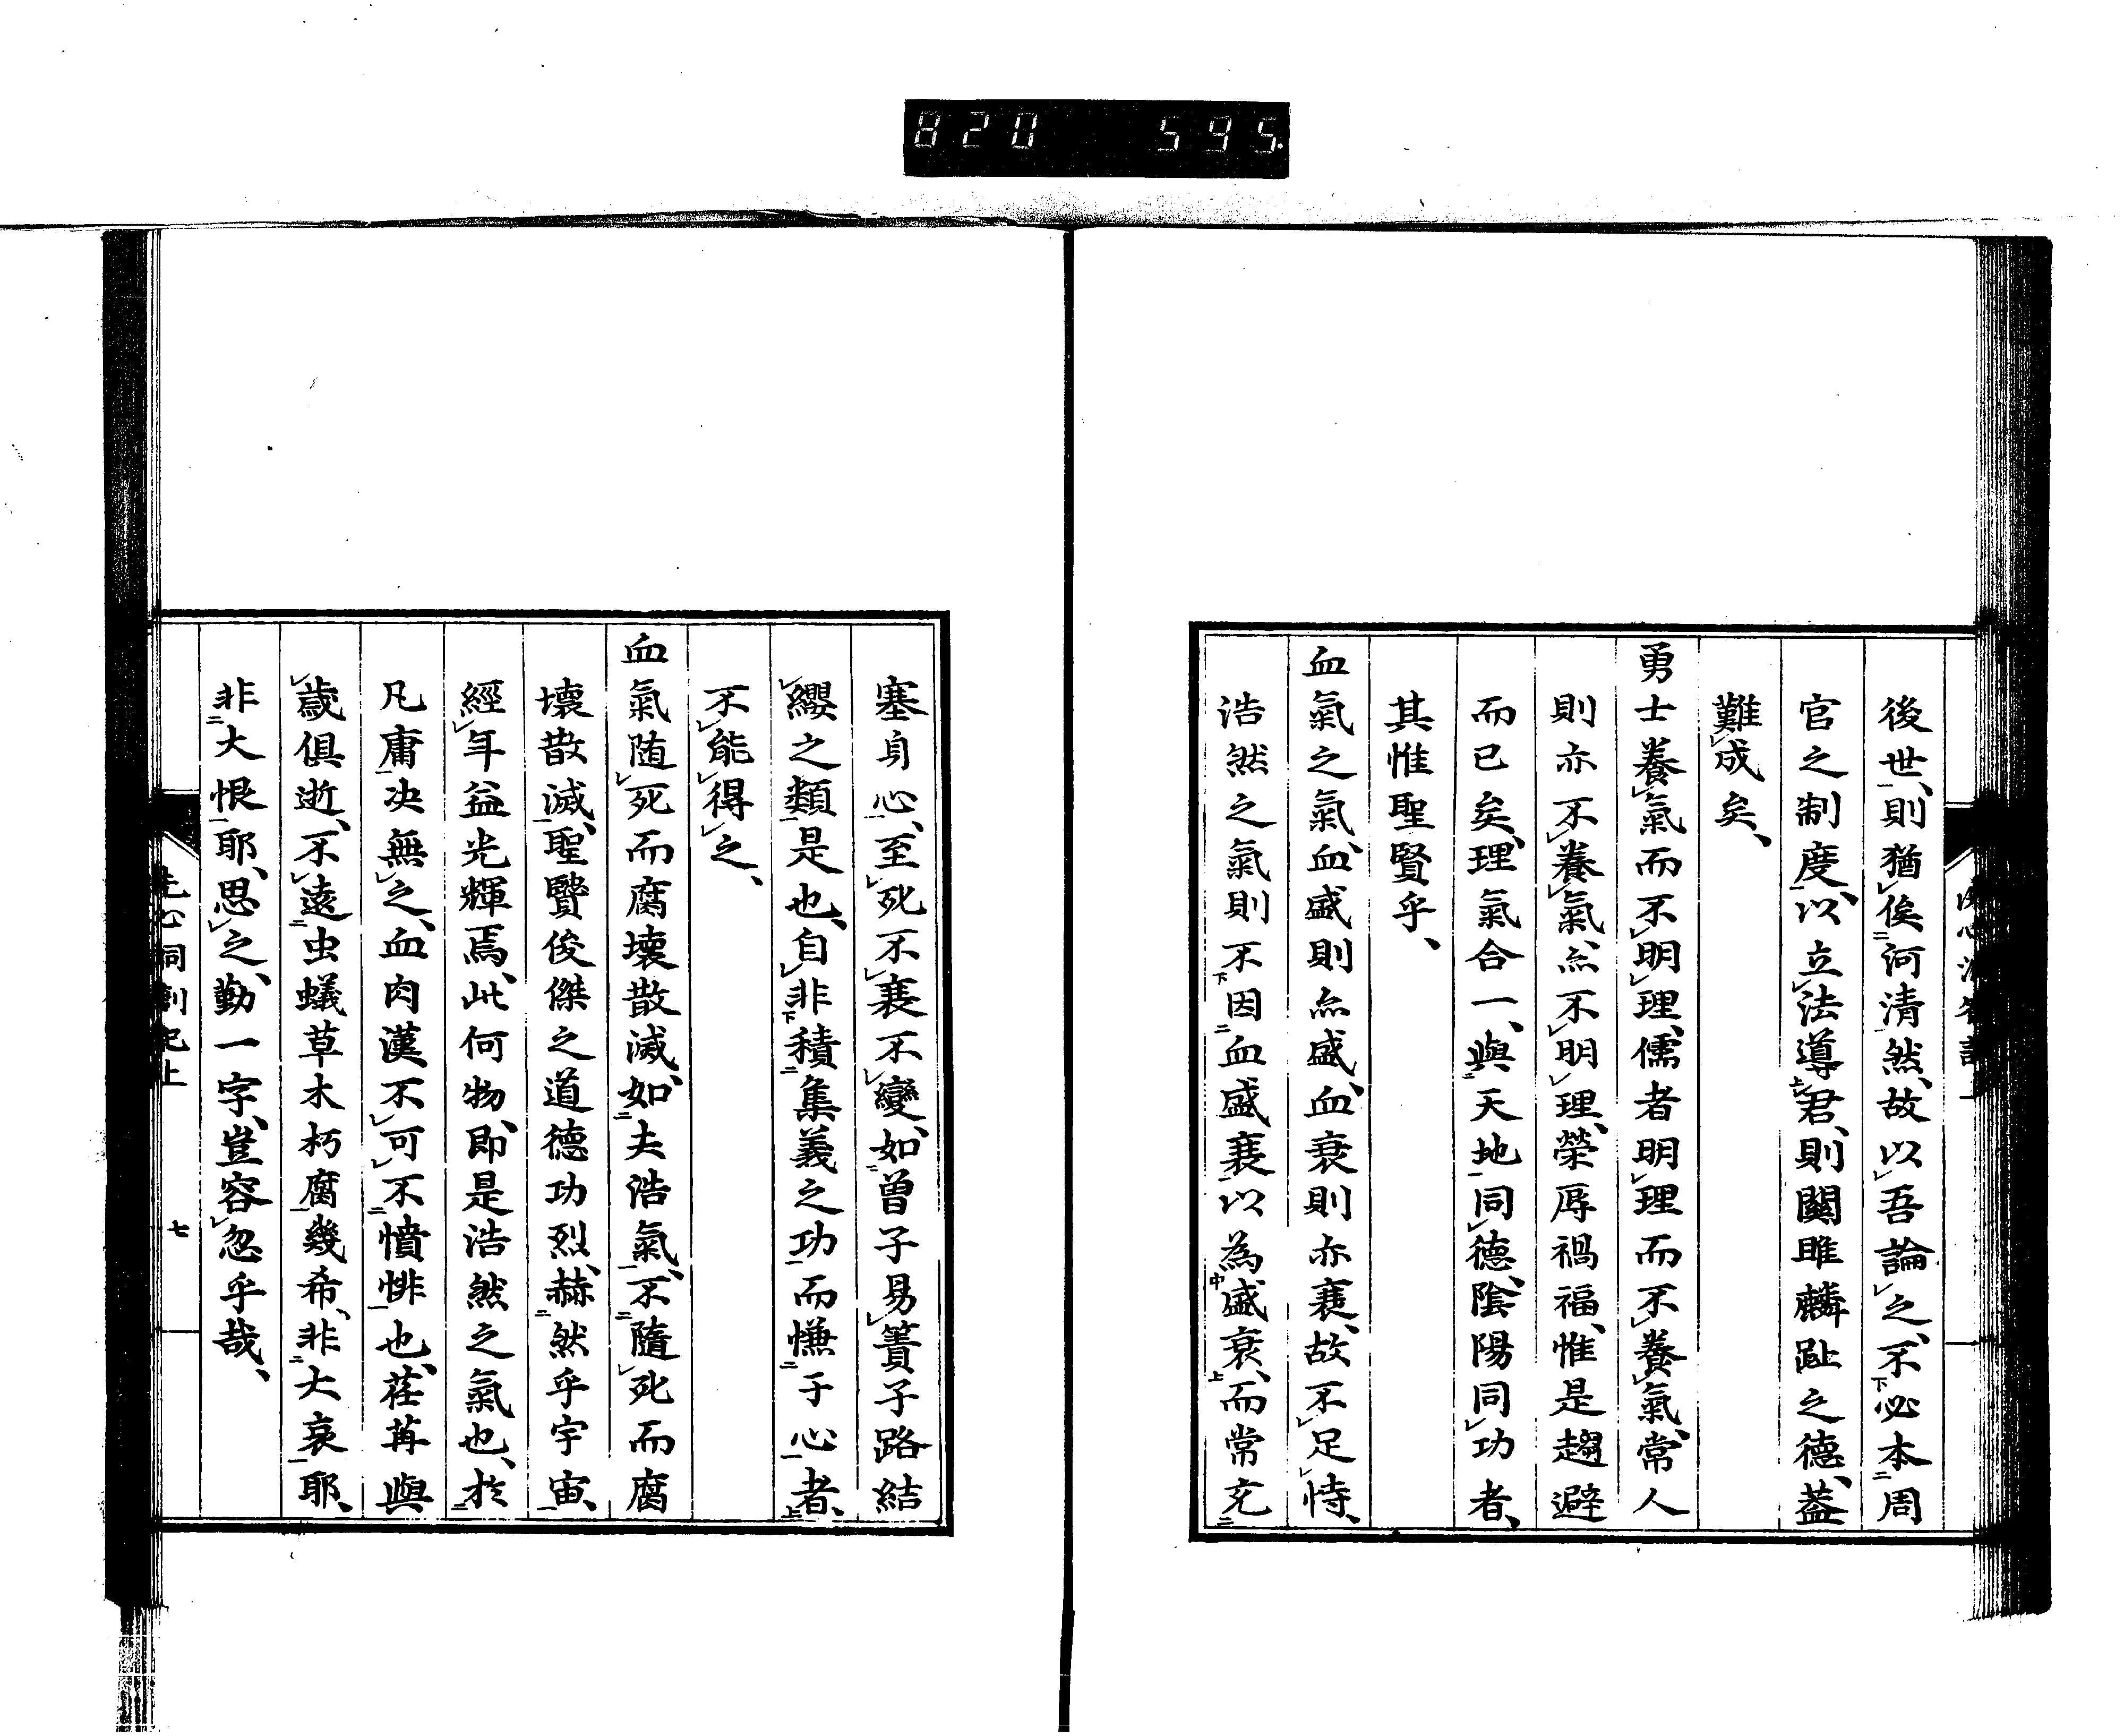 820 595.
後世、則猶俟河清然、故以吾論之、不必本周
官之制度、以立法導君、則關雎麟趾之德、蓋
難成矣、
勇士養氣而不明理、儒者明理而不養氣、常人
則亦不養氣、亦不明理、榮辱禍福、惟是趨避
而已矣、理氣合一、與天地同德、陰陽同功者、
其惟聖賢乎、
血氣之氣、血盛則亦盛、血衰則亦衰、故不足恃、
浩然之氣則不因血盛衰以為盛衰、而常充
塞身心、至死不衰不變、如曾子易簀子路結
纓之類是也、自非積集義之功而慊于心者、
不能得之、
血氣随死而腐壞散滅、如夫浩氣、不隨死而腐
壞散滅、聖賢俊傑之道德功烈、赫然乎宇宙、
經年益光輝焉、此何物、即是浩然之氣也、於
凡庸決無之、血肉漢不可不憤悱也、荏苒與
歲俱逝、不遠虫蟻草木朽腐幾希、非大哀耶、
非大恨耶、思之、勤一字、豈容忽乎哉、
七